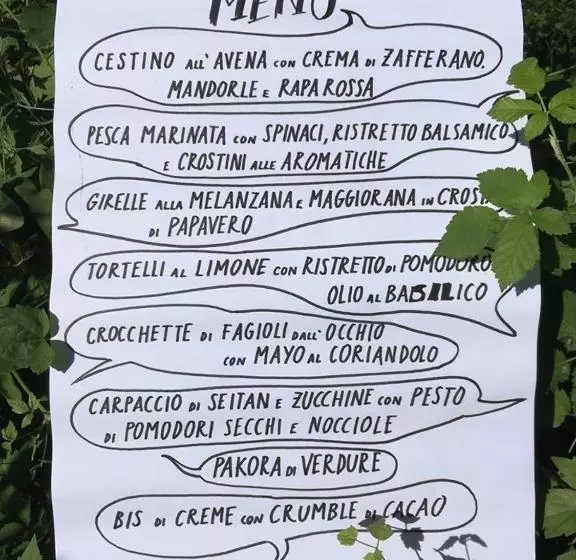 MENÙ
CESTINO ALL'AVENA CON CREMA DI ZAFFERANO,
MANDORLE E RAPA ROSSA
PESCA MARINATA CON SPINACI, RISTRETTO BALSAMICO
E CROSTINI ALLE AROMATICHE
GIRELLE ALLA MELANZANA E MAGGIORANA IN
DI PAPAVERO
TORTELLI AL LIMONE CON RISTRETTO DI POMODORO
OLIO AL BASILICO
CROCCHETTE DI FAGIOLI DALL'OCCHIO
CON MAYO AL CORIANDOLO
CARPACCIO DI SEITAN E ZUCCHINE CON PESTO
DI POMODORI SECCHI E NOCCIOLE
PAKORA DI VERDURE
BIS DI CREME CON CRUMBLE DI CACAO